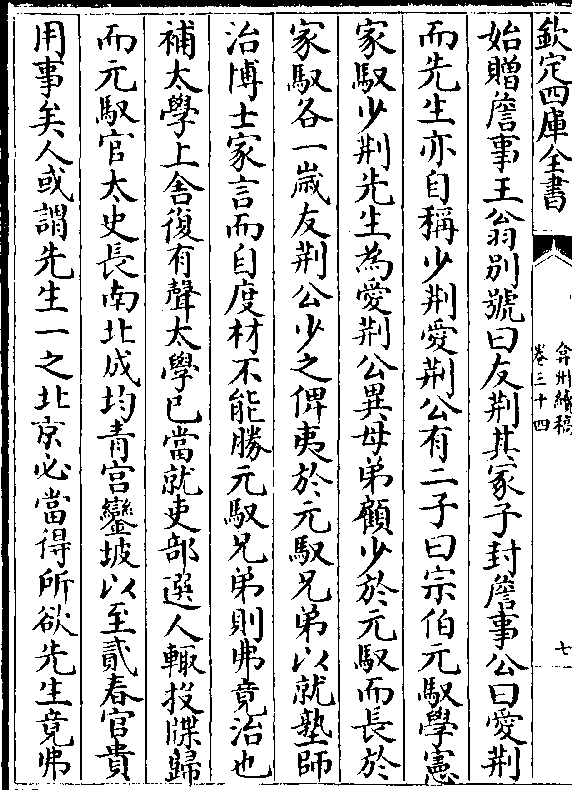 欽定四庫全書
弇州續稿
卷三十四
七
始贈詹事王翁别號曰友荆其冢子封詹事公曰愛荆
而先生亦自稱少荆愛荆公有二子曰宗伯元馭學憲
家馭少荆先生為愛荆公異母弟顧少於元馭而長於
家馭各一嵗友荆公少之俾夷於元馭兄弟以就塾師
治博士家言而自度材不能勝元馭兄弟則弗竟治也
補太學上舍復有聲太學已當就吏部選人輙投牒歸
而元馭官太史長南北成均青宫鑾坡以至貳春官貴
用事矣人或謂先生一之北京必當得所欲先生竟弗